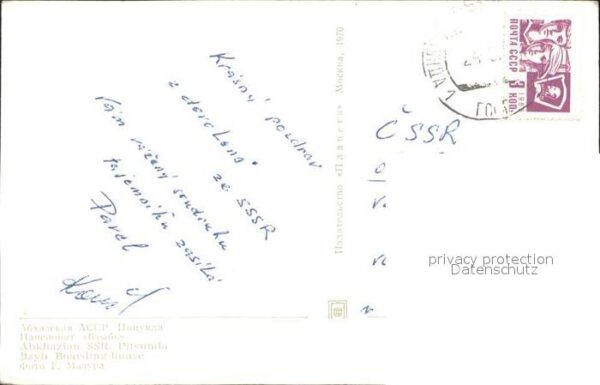 Krásný pozdrav
z dovolené ze SSSR
Vám vážený soudruhu
tajemníku zasílá
Pavel
Издательство «Планета» Москва, 1970
ПОЧТА СССР
ЧССР
Абхазская АССР. Пицунда
Пансионат «Бзыбь»
Abkhazian SSR. Pitsunda
Bzyb Boarding-house
Фото Г. Мазура
privacy protection
Datenschutz